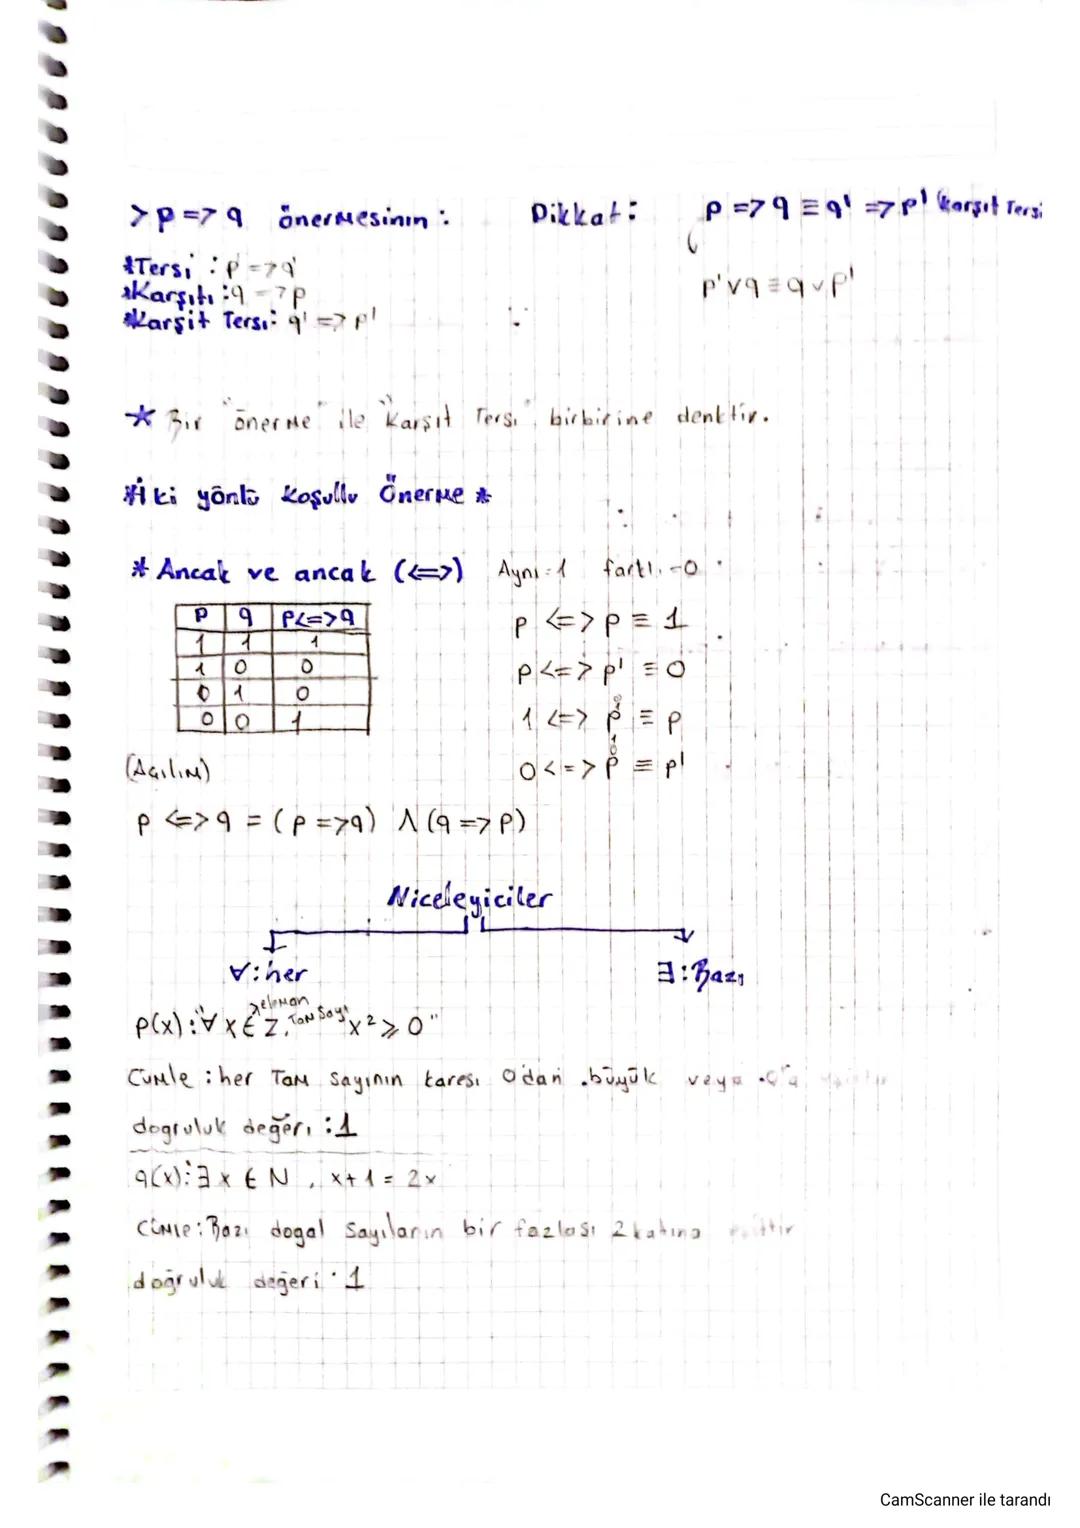 >p => q önermesinin :
Dikkat : p => q ≡ q' => p' (karşıt Tersi
*Tersi : p' => q'
p' ∨ q ≡ q ∨ p'
*Karşıtı : q => p
*Karşit Tersi : q' => p'
* Bir "önerme" ile "Karşıt Tersi" birbirine denktir.
*İki yönlü Koşullu Önerme *
* Ancak ve ancak (<=>) Aynı=1 farklı=0
p q p<=>q
1 1 1
1 0 0
0 1 0
0 0 1
p <=> p ≡ 1
p <=> p' ≡ 0
1 <=> p ≡ p
0 <=> p ≡ p'
(Açılım)
p <=> q = (p => q) ∧ (q => p)
Niceleyiciler
∀ : her
∃ : Bazı
p(x) : "∀ x ∈ Z, x² ⩾ 0"
>eleman
Tam Sayı
Cümle : her Tam sayının karesi 0dan büyük veya
dogruluk değeri : 1
q(x) : ∃ x ∈ N , x+1 = 2x
Cümle : Bazı dogal Sayıların bir fazlası 2 katına eşittir
doğruluk değeri : 1
CamScanner ile tarandı